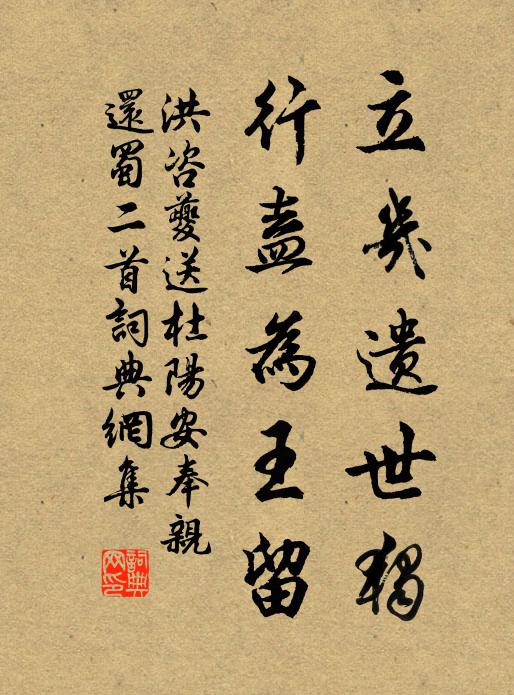 立幾遺世獨
行盍為王留
洪咨夔送杜陽安奉親
還蜀二首詞典網集
詞典
網印